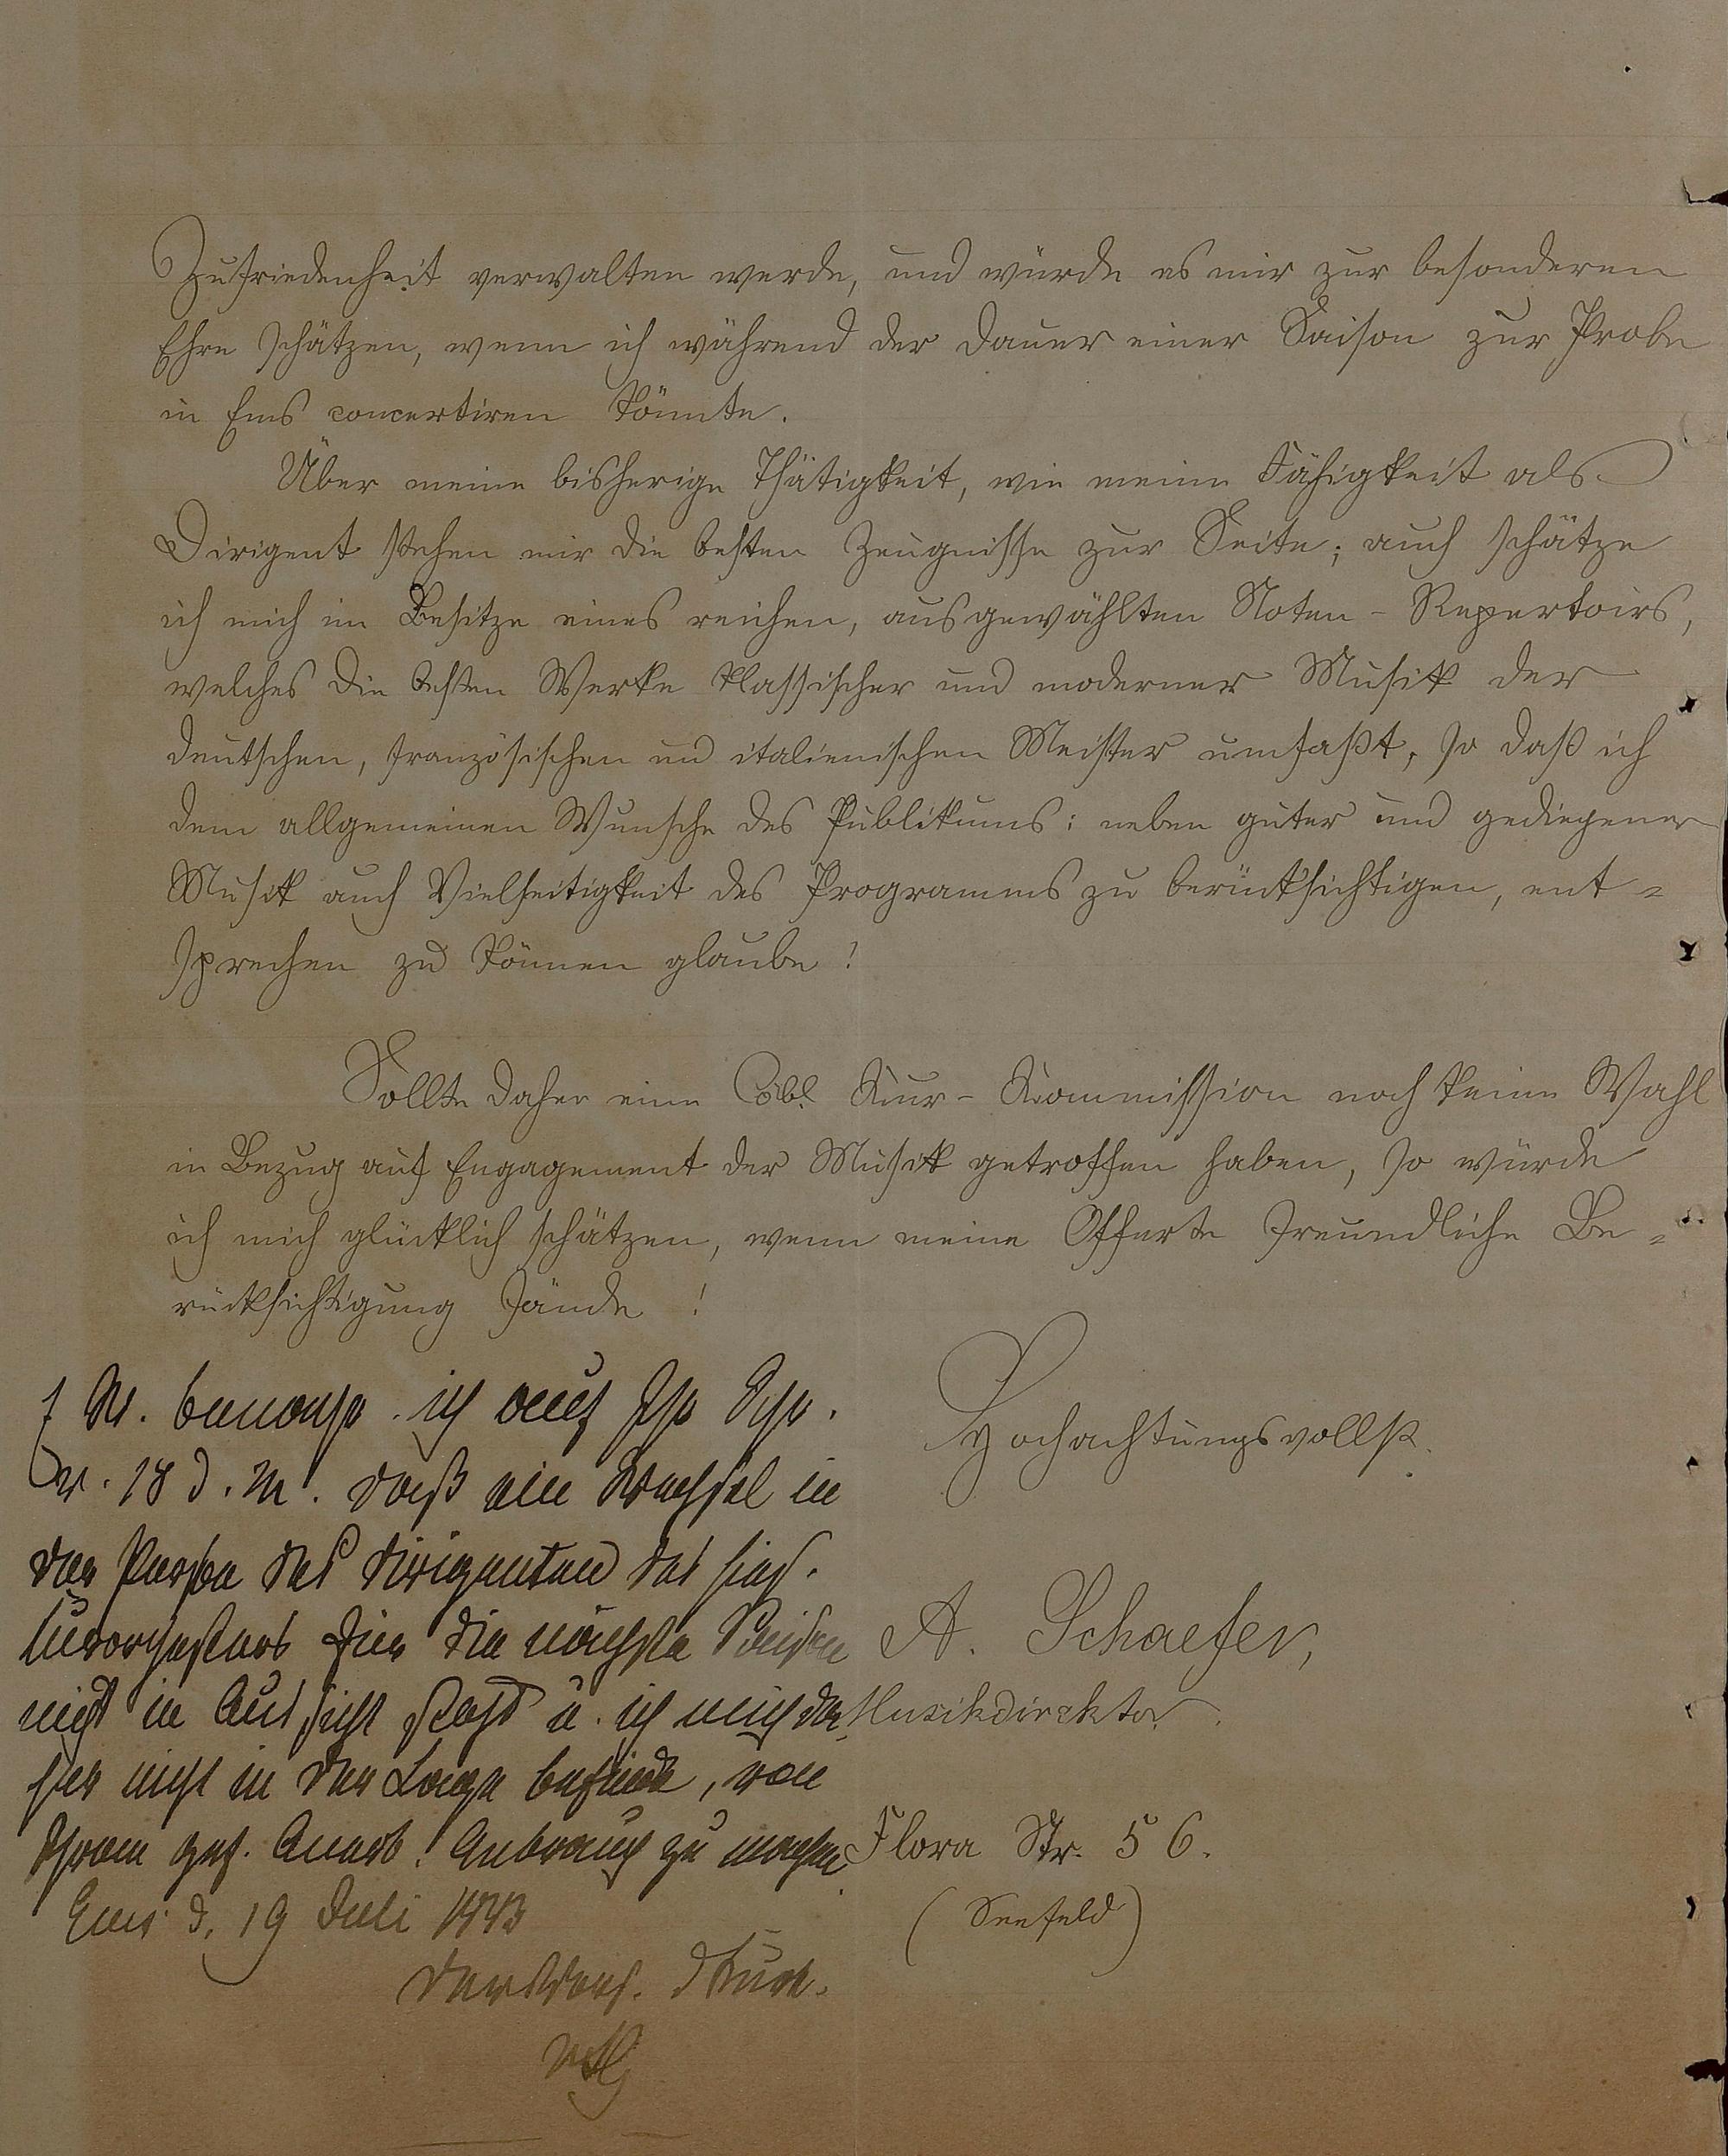 Zufriedenheit verwalten werde, und würde es mir zur besonderen
Ehre schätzen, wenn ich während der Dauer einer Saison zur Probe
in Ems concertiren könnte.
Über meine bisherige Thätigkeit, wie meine Fähigkeit als
Dirigent stehen mir die besten Zeugnisse zur Seite; auch schätze
ich mich im Besitze eines reichen, ausgewählten Noten-Repertoirs,
welches die besten Werke klassischer und moderner Musik der
deutschen, französischen und italienischen Meister umfaßt, so daß ich
dem allgemeinen Wunsche des Publikums: neben guter und gediegener
Musik auch Vielseitigkeit des Programms zu berücksichtigen, ent=
sprechen zu können glaube!
Sollte daher eine Löbl. Kur-Kommission noch keine Wahl
in Bezug auf Engagement der Musik getroffen haben, so würde
ich mich glücklich schätzen, wenn meine Offerte freundliche Be=
rücksichtigung fände!
Hochachtungsvollst.
A. Schaefer,
Musikdirektor.
Flora Str. 56.
(Seefeld)
ich auf Ihr Schr.
v. 18 d. M. daß ein Wechsel in
der Person des Dirigenten des hies.
Kurorchesters für die nächste Saison
nicht in Aussicht steht u. ich mich da-
her nicht in der Lage befinde, von
Ihrem gef. Anerb. Gebrauch zu machen.
Ems d. 19 Juli